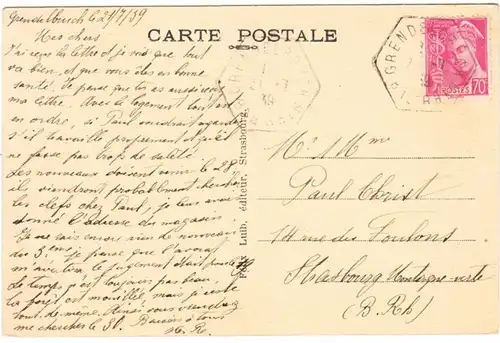 Grendelbruch le 21/7/39
CARTE POSTALE
Mes chers
J'ai reçu la lettre et je vois que tout
va bien, et que vous êtes en bonne
santé. Je pense que vous aussi
ma lettre. Avec le logement tout est
en ordre, si Paul voudrait regarder
s'il travaille proprement et qu'il
ne fasse pas trop de saleté.
Les nouveaux doivent venir le 28
ils viendront probablement chercher
les clefs chez Paul, je leur avais
donné l'adresse du magasin.
Je ne sais encore rien de nouveau
du 3. Je pense que l'avocat
m'avertira le jugement était
Le temps n'est toujours pas beau
la forêt est mouillée mais je
tout de même. Ainsi vous viendrez
me chercher le 31. Baisers à tous
H. R.
Félix Luib, éditeur, Strasbourg.
GRENDELBRUCH
POSTES 70c
Mr. Mme
Paul Christ
14 rue des Foulons
Strasbourg Montagne-verte
(B. Rh)